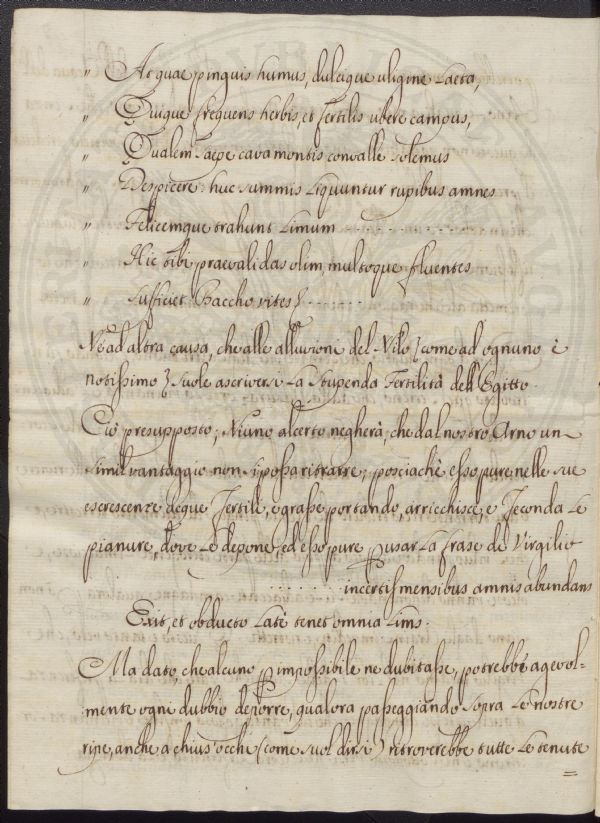 „ At quae pinguis humus, dulcique uligine laeta,
„ Quique frequens herbis, et fertilis ubere campus,
„ Qualem saepe cava montis convalle solemus
„ Despicere: huc summis liquuntur rupibus amnes
„ Felicemque trahunt limum . . . . . . . . . .
„ Hic tibi praevalidas olim, multoque fluentes
„ Sufficiet Baccho vites . . . . . .
Ne ad altra causa, che alle alluvioni del Nilo (come ad ognuno è
notissimo) suole ascriversi la stupenda Fertilità dell'Egitto.
Ciò presupposto; Niuno alcerto negherà, che dal nostro Arno un
simil vantaggio non si possa ritrarre; posciachè esso pure nelle sue
escrescenze acque Fertili, e grasse portando, arricchisce, e Feconda le
pianure, dove le depone, ed esso pure p usar la frase di Virgilio
. . . . . . . incertis mensibus amnis abundans
Exit, et obducto latè tenet omnia limo.
Ma dato, che alcuno p impossibile ne dubitasse, potrebbe agevol-
mente ogni dubbio deporre, qualora passeggiando sopra le nostre
ripe, anche a chius'occhi (come suol dirsi) ritroverebbe tutte le tenute
=